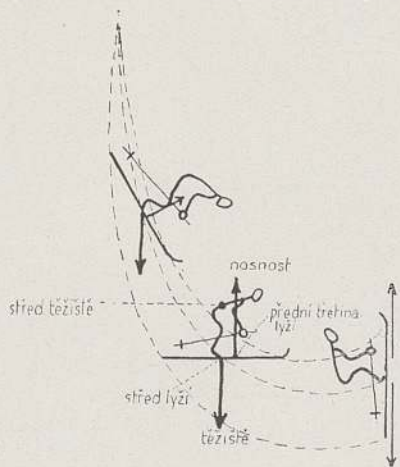 nosnost
střed těžiště
přední třetina
lyží
střed lyží
těžiště